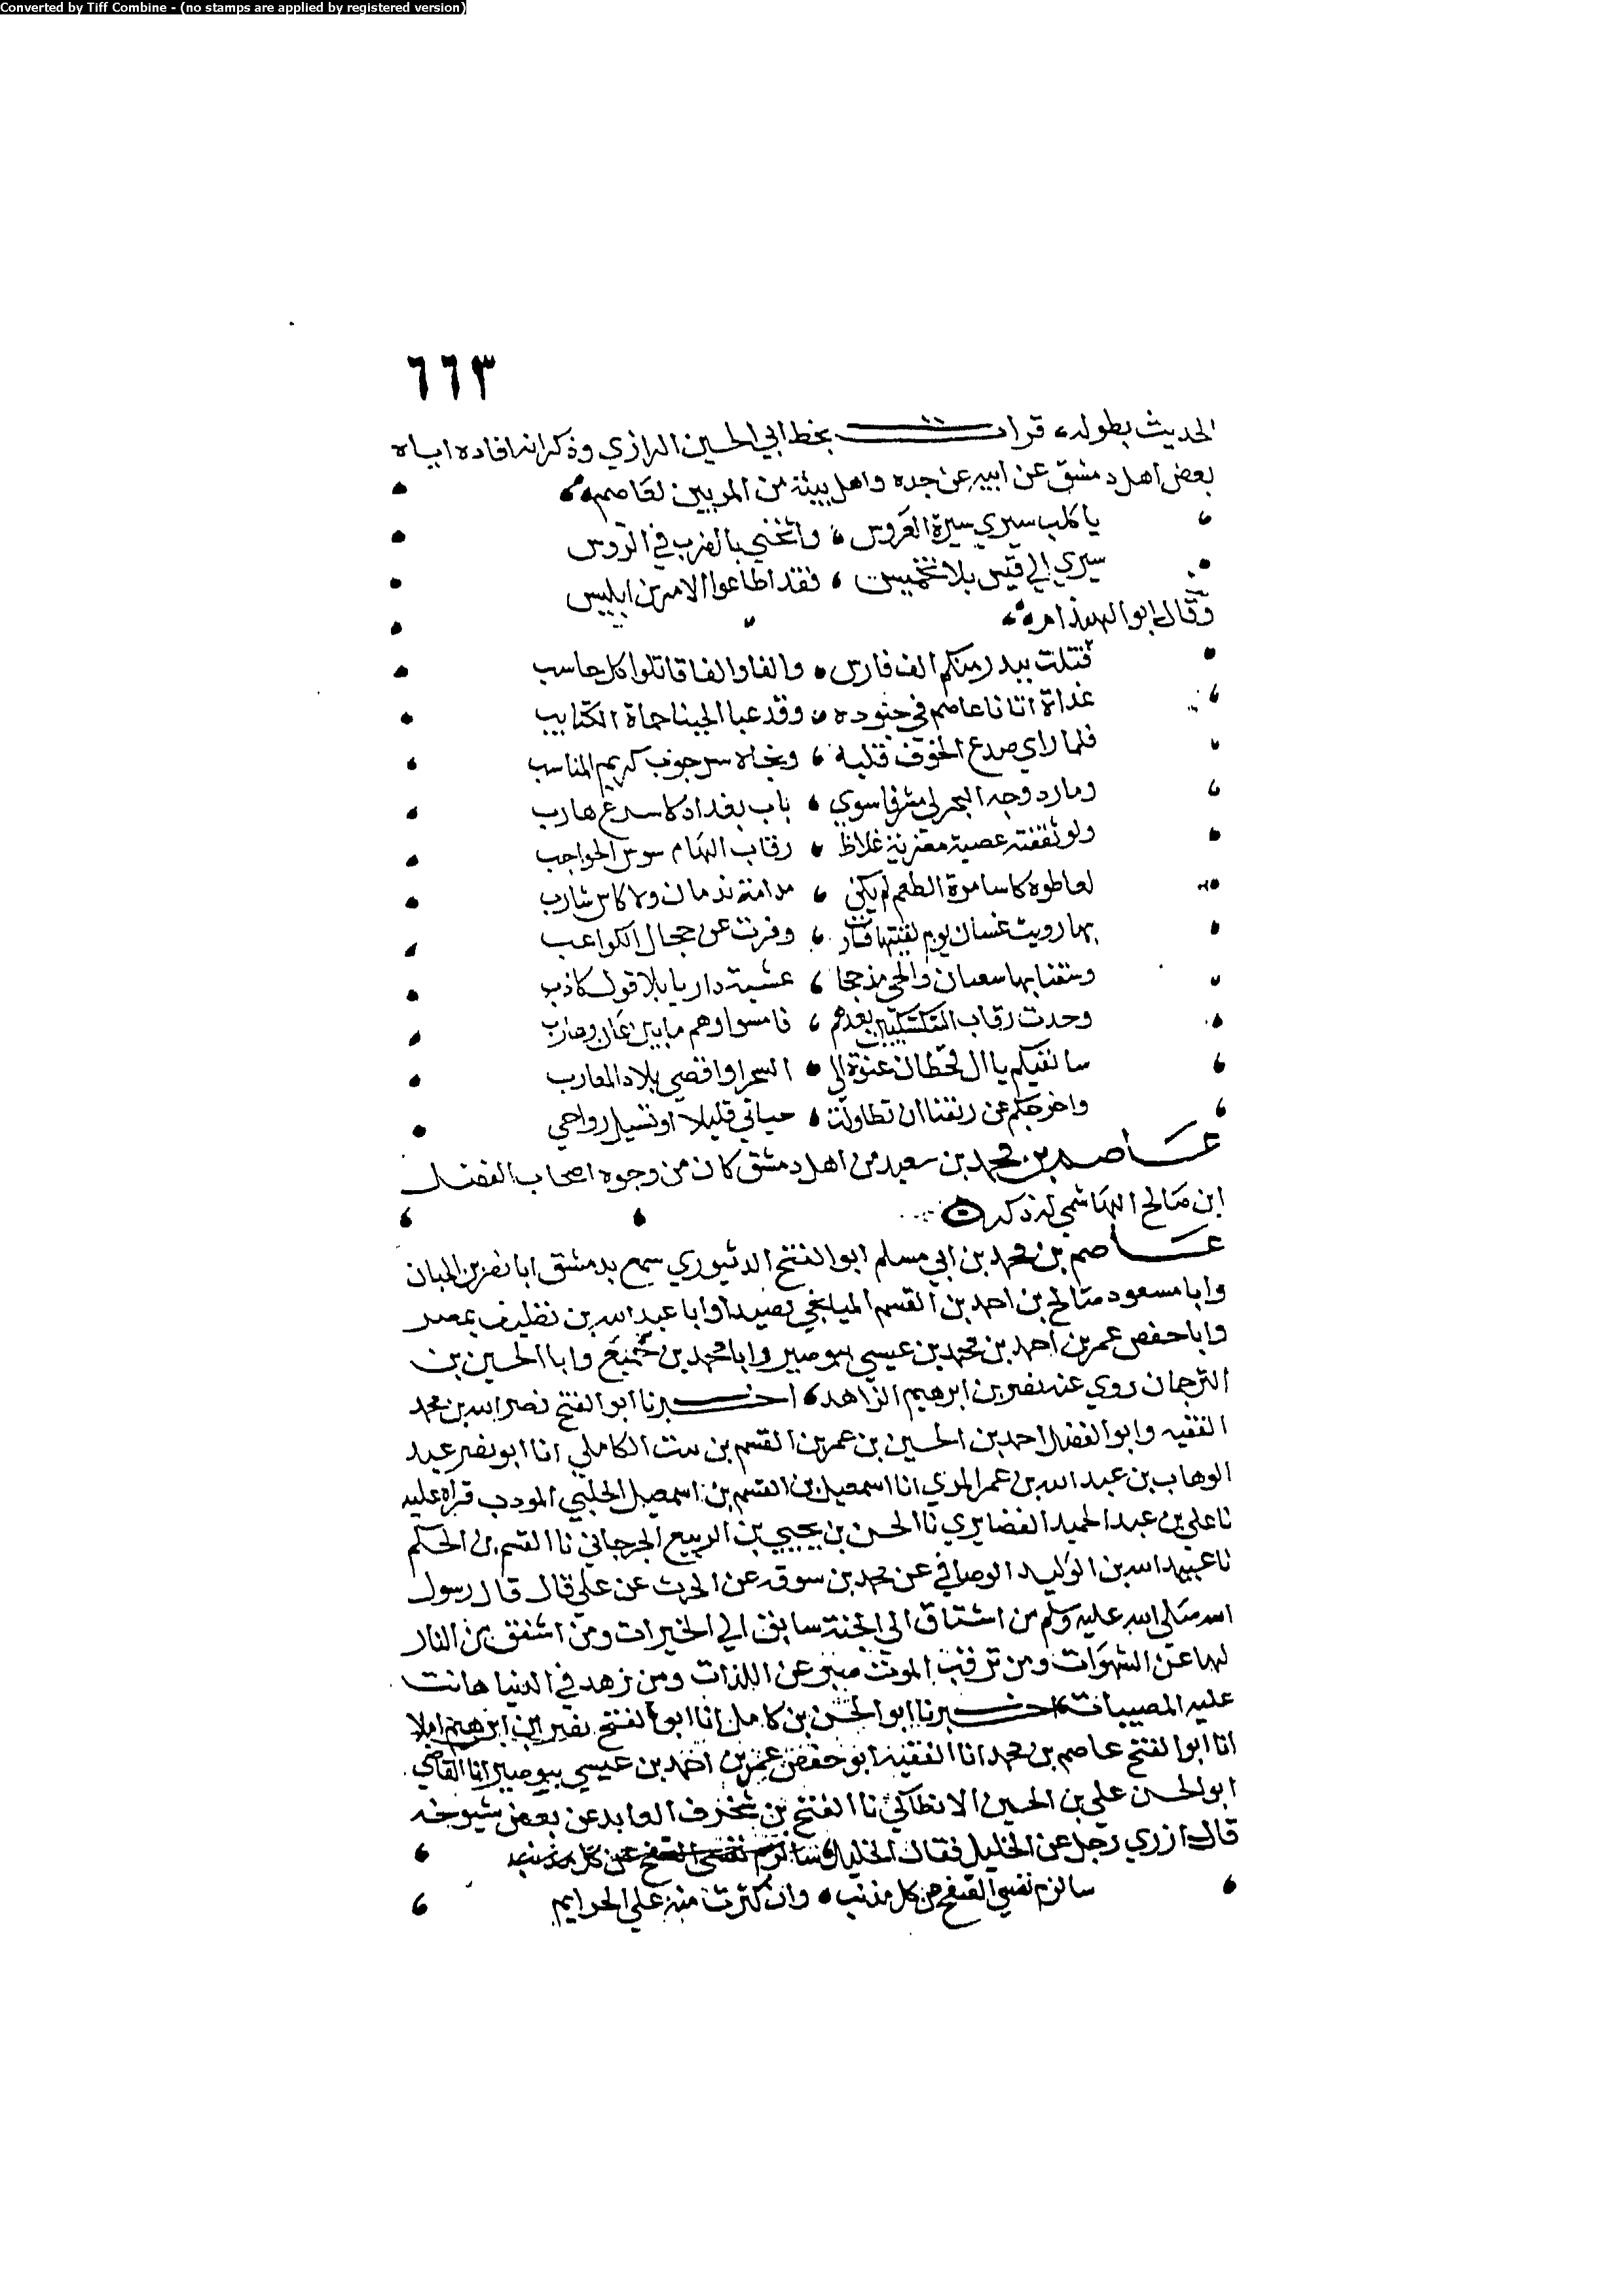 Converted by Tiff Combine - (no stamps are applied by registered version)
٦٦٣
الحديث بطوله، قرات بخط ابي الحسين الرازي وذكر انه افاده اياه
بعض اهل دمشق عن ابيه عن جده واهل بيته من المريين لعاصم
يا كلب سيري سيرة العروس، واثخني بالضرب في الروس
سيري الي قيس بلا تخميس، فقد اطاعوا الامر من ابليس
وقال ابو الهيذام
قتلت ببدر منكم الف فارس، والفا والفا قاتلوا كل حاسب
غداة اتانا عاصم في جنوده، وقد عبا الجينا حماة الكتايب
فلما راي صدع الخوف قلبه، ونجاه سرجوب كريم المناسب
وما رد وجه البحر لي مشرفا سوي، باب بغداد كاسرع هارب
ولو ثقفته عصبة مغربية غلاظ، رقاب الهام سوس الحواجب
لعاطوه كاسا مرة الطعم لم يكن، مدامة ندمان ولا كاس شارب
بها رويت غسان يوم لقيتها، وفرت عن جحال الكواعب
وسقنا بها سعبان والحي مذحجا، عشية داريا بلا قول كاذب
وحدت رقاب السكسكيين بعدهم، فامسوا وهم ما بين عان وهارب
سانفيكم يا ال قحطان عنوة الي، السحر او اقصي بلاد المعارب
واخرجكم عن ريفنا ان تطاولت، حياتي قليلا او تسيل رواحي
عاصم بن محمد بن سعيد من اهل دمشق كان من وجوه اصحاب الفضل
ابن صالح الهاشمي له ذكر
عاصم بن محمد بن ابي مسلم ابو الفتح الدينوري سمع بدمشق ابا نصر بن الجبان
وابا مسعود صالح بن احمد بن القسم الميانجي بصيدا وابا عبد الله بن نظيف بمصر
وابا حفص عمر بن احمد بن محمد بن عيسي ببوصير وابا محمد بن جميع وابا الحسين بن
الترجمان روي عنه نصر بن ابرهيم الزاهد، اخبرنا ابو الفتح نصر الله بن محمد
الفقيه وابو الفضل احمد بن الحسين بن عمر بن القسم بن بنت الكاملي انا ابو نصر عبد
الوهاب بن عبد الله بن عمر المري انا اسمعيل بن القسم بن اسمعيل الحلبي المودب قراه عليه
نا علي بن عبد الحميد الغضايري نا الحسن بن يحيي بن الربيع الجرجاني نا القسم بن الحكم
نا عبيد الله بن الوليد الوصافي عن محمد بن سوقه عن الحرث عن علي قال قال رسول
الله صلي الله عليه وسلم من اشتاق الي الجنة سابق الي الخيرات ومن اشفق من النار
لها عن الشهوات ومن ترقب الموت صبر عن اللذات ومن زهد في الدنيا هانت
عليه المصيبات، اخبرنا ابو الحسن بن كامل انا ابو الفتح نصر بن ابرهيم املا
انا ابو الفتح عاصم بن محمد انا الفقيه ابو حفص عمر بن احمد بن عيسي ببوصير انا القاضي
ابو الحسن علي بن الحسين الانطاكي نا الفتح بن شخرف العابد عن بعض شيوخه
قال ازري رجل عن الخليل فقال الخليل سالزم نفسي الصفح عن كل مذنب
سالزم نفسي الصفح من كل مذنب، وان كثرت منه علي الجرايم